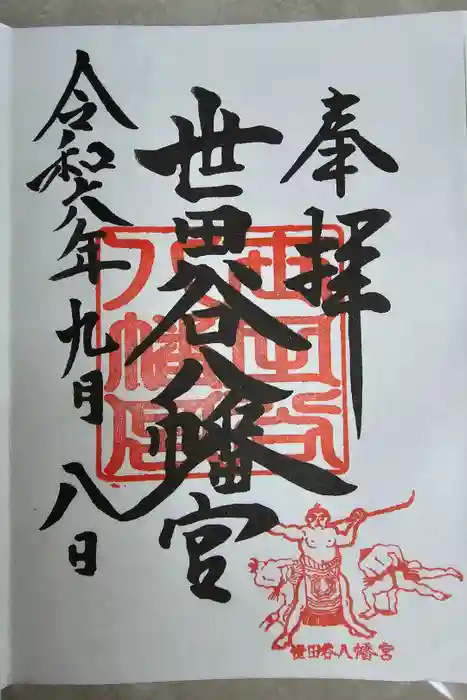 奉拝
世田谷八幡宮
令和六年九月八日
世田谷
八幡宮
世田谷八幡宮